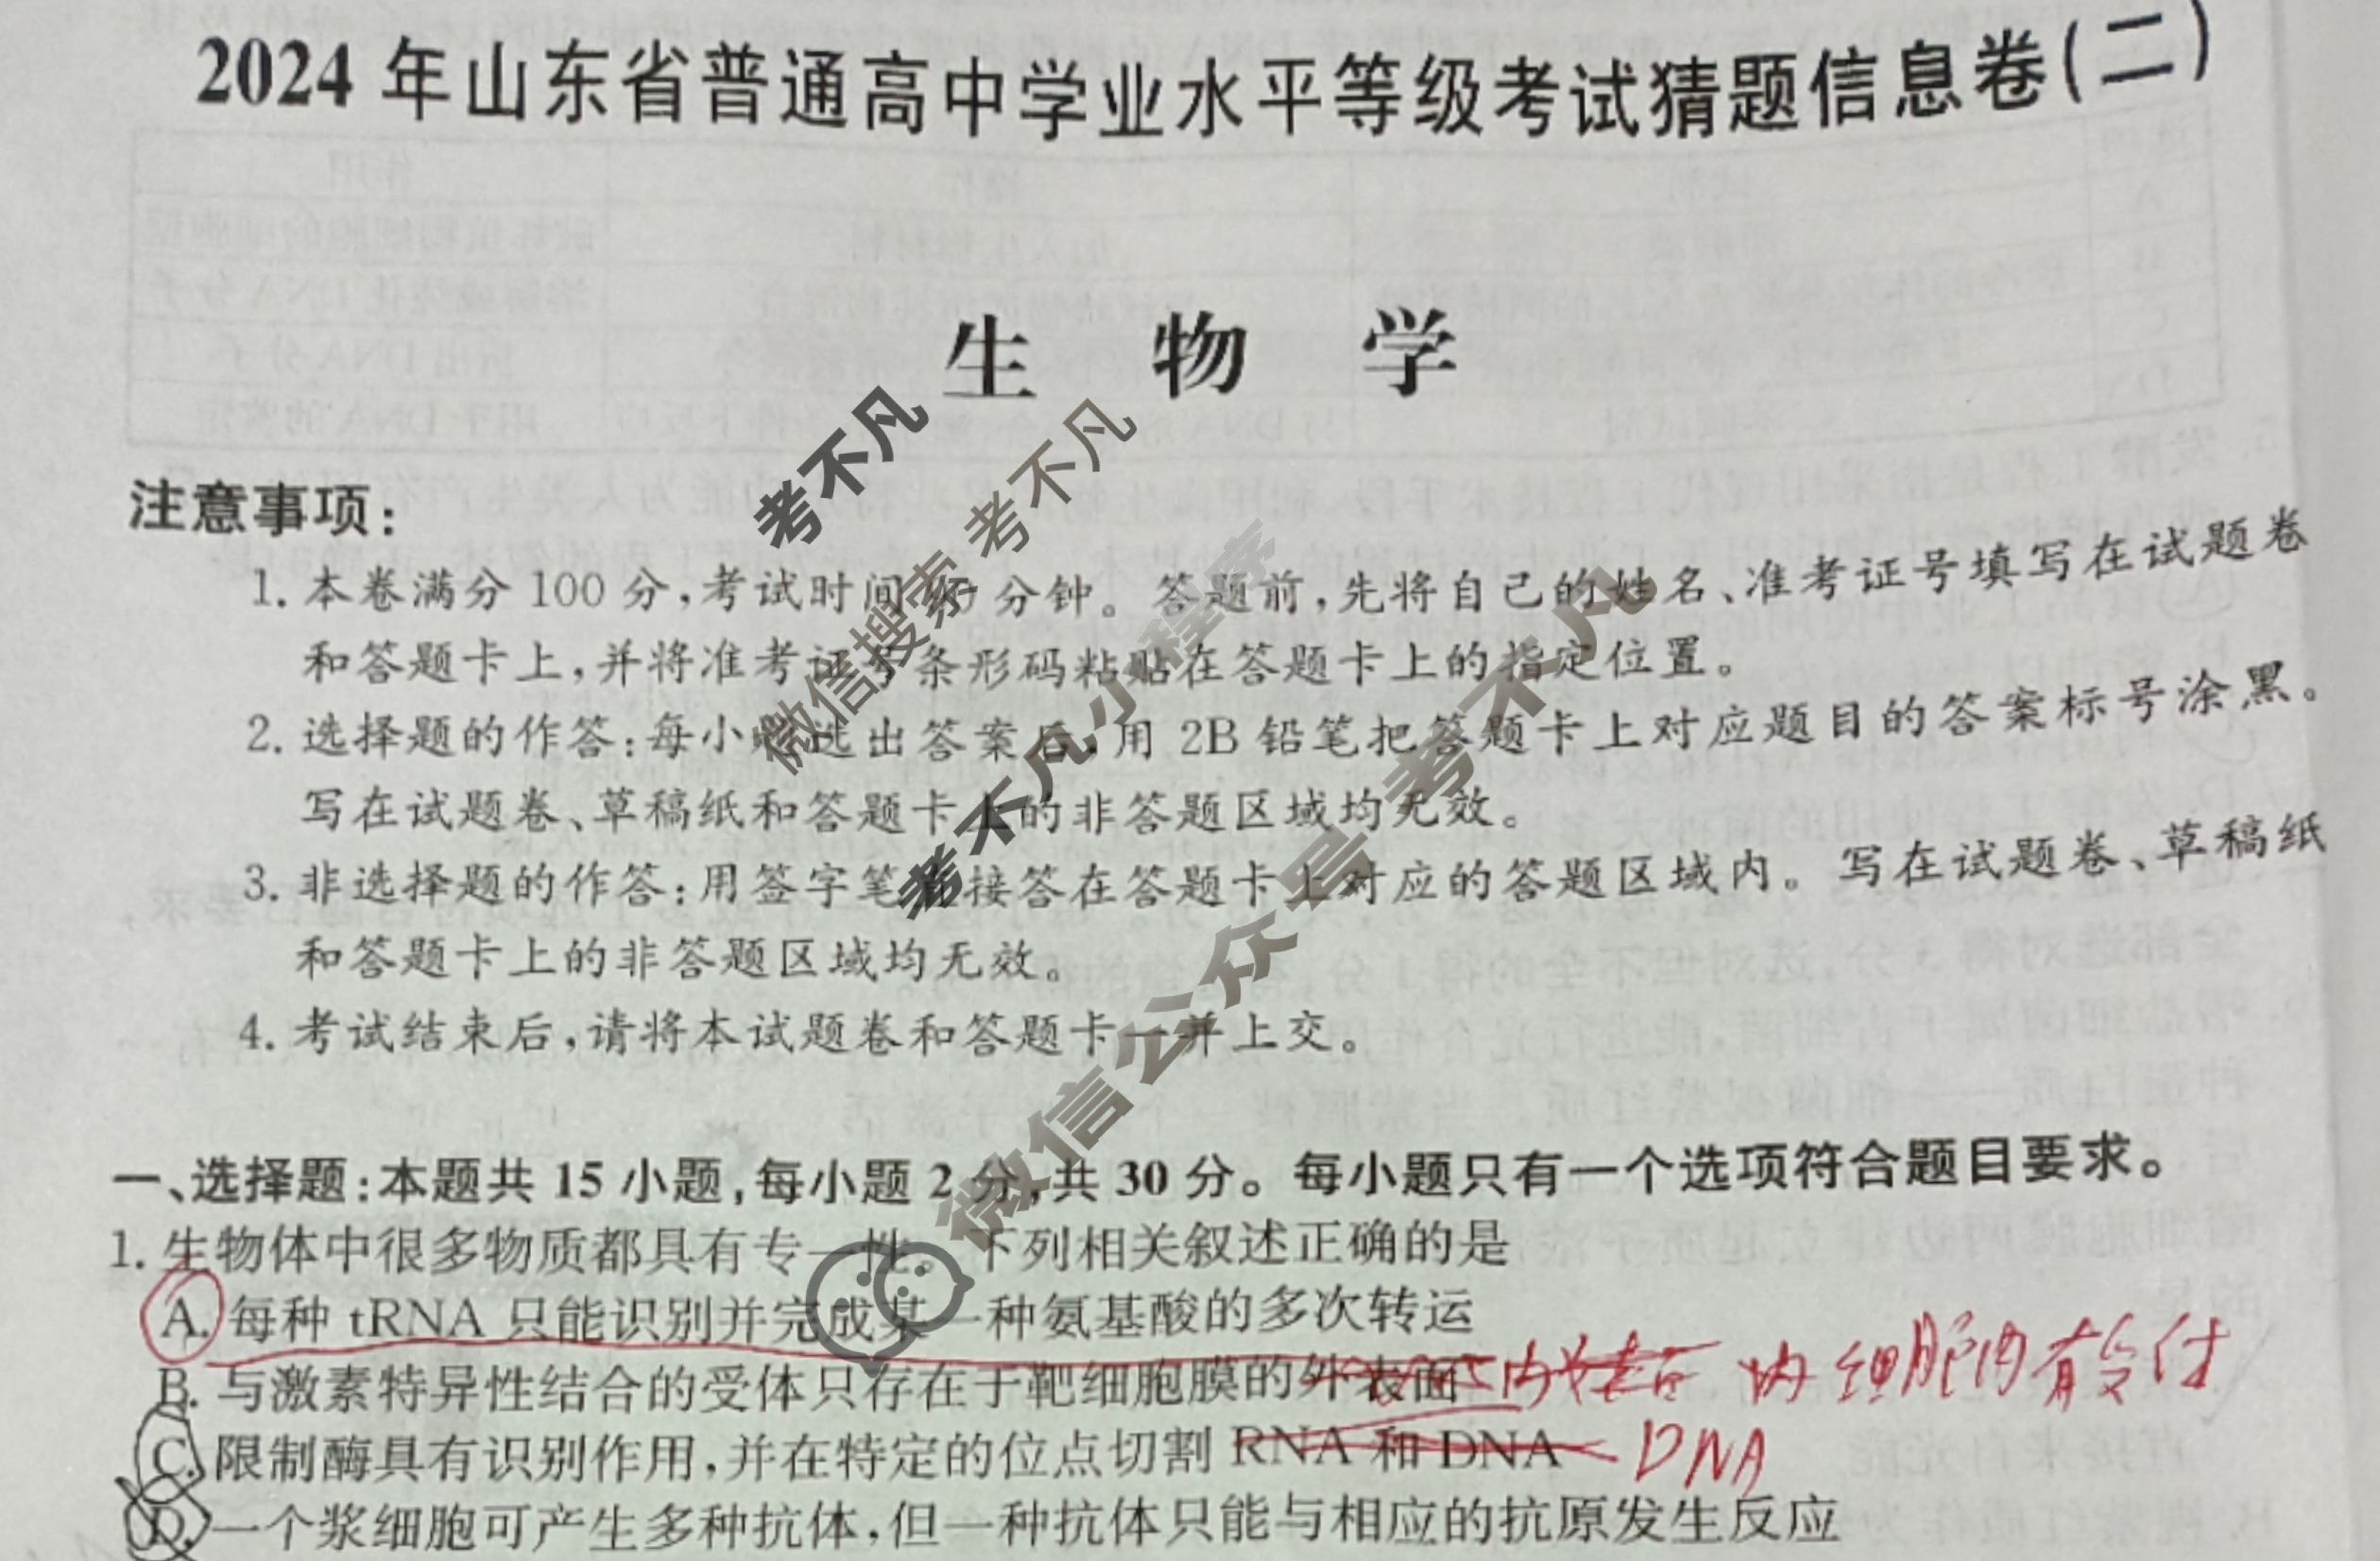 2024年山东省普通高中学业水平等级考试猜题信息卷(二)
生 物 学
注意事项:
1. 本卷满分 100 分,考试时间 分钟。答题前,先将自己的姓名、准考证号填写在试题卷
和答题卡上,并将准考证号条形码粘贴在答题卡上的指定位置。
2. 选择题的作答:每小题选出答案后,用 2B 铅笔把答题卡上对应题目的答案标号涂黑。
写在试题卷、草稿纸和答题卡上的非答题区域均无效。
3. 非选择题的作答:用签字笔直接答在答题卡上对应的答题区域内。写在试题卷、草稿纸
和答题卡上的非答题区域均无效。
4. 考试结束后,请将本试题卷和答题卡一并上交。
考不凡
微信搜索 考不凡
考不凡小程序
微信公众号 考不凡
一、选择题:本题共 15 小题,每小题 2 分,共 30 分。每小题只有一个选项符合题目要求。
1. 生物体中很多物质都具有专一性。下列相关叙述正确的是
A. 每种 tRNA 只能识别并完成某一种氨基酸的多次转运
B. 与激素特异性结合的受体只存在于靶细胞膜的外表面 细胞内有受体
C. 限制酶具有识别作用,并在特定的位点切割 RNA 和 DNA DNA
D. 一个浆细胞可产生多种抗体,但一种抗体只能与相应的抗原发生反应